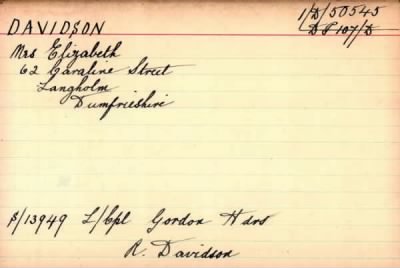 DAVIDSON
1/D/50545
DP107/D
Mrs Elizabeth
62 Caraline Street
Langholm
Dumfrieshire
S/13949 L/Cpl Gordon Hdrs
R. Davidson